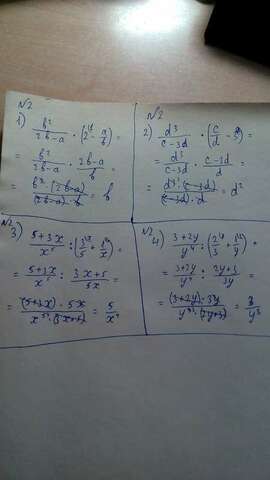 №2
1) b²/(2b-a) · (2^{\b} - a/b) =
= b²/(2b-a) · (2b-a)/b =
= (b² · (2b-a))/((2b-a) · b) = b
№2
2) d³/(c-3d) · (c/d - 3^{\d}) =
= d³/(c-3d) · (c-3d)/d =
= (d³ · (c-3d))/((c-3d) · d) = d²
№2
3) (5+3x)/x⁵ : (3/5 + 1/x) =
= (5+3x)/x⁵ : (3x+5)/5x =
= ((5+3x) · 5x)/(x⁵ · (3x+5)) = 5/x⁴
№2
4) (3+2y)/y⁴ : (2/3 + 1/y) =
= (3+2y)/y⁴ : (2y+3)/3y =
= ((3+2y) · 3y)/(y⁴ · (2y+3)) = 3/y³